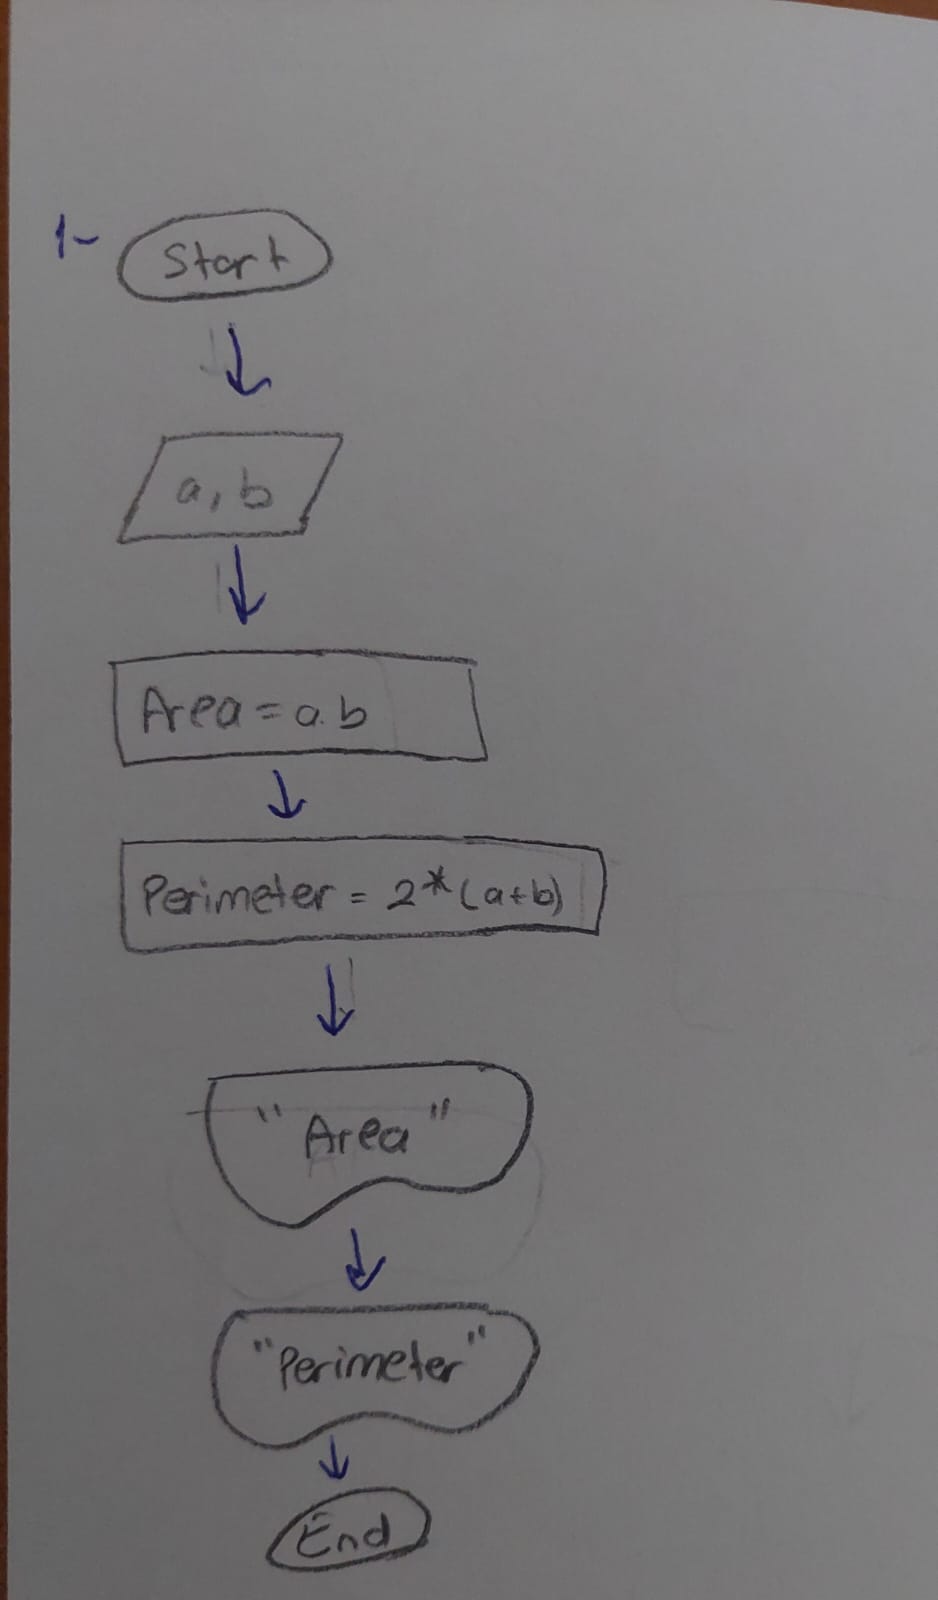 1-
Start
a, b
Area = a.b
Perimeter = 2*(a+b)
"Area"
"Perimeter"
End